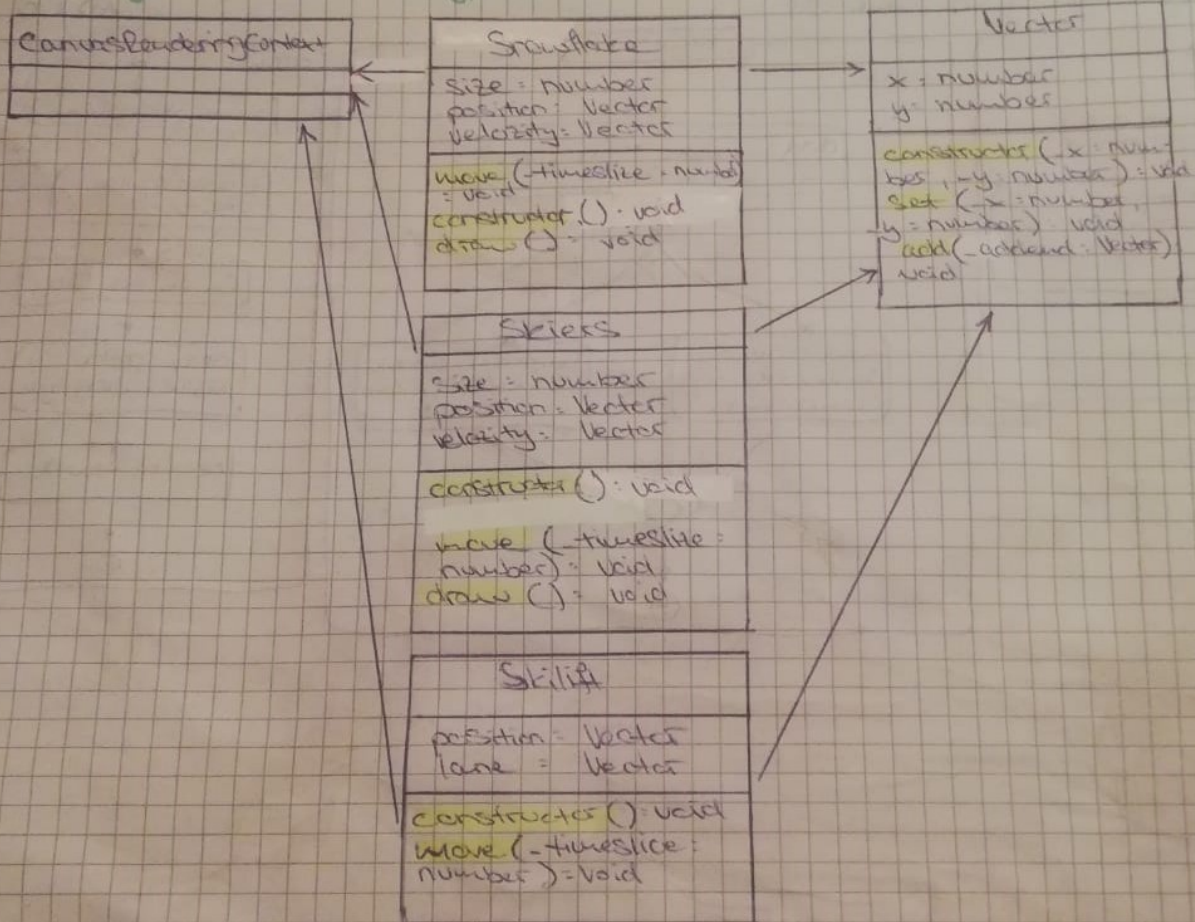 CanvasRenderingContext
Snowflake
size : number
position : Vector
velozity : Vector
move (_timeslize : number)
: void
constructor () : void
draw () : void
Vector
x : number
y : number
constructor (_x : num
ber, _y : number) : void
set (_x : number,
_y : number) : void
add (_addend : Vector)
void
Skiers
size : number
position : Vector
velozity : Vector
constructor () : void
move (_timeslize :
number) : void
draw () : void
Skilift
position : Vector
lane : Vector
constructor () : void
move (_timeslice :
number) : void